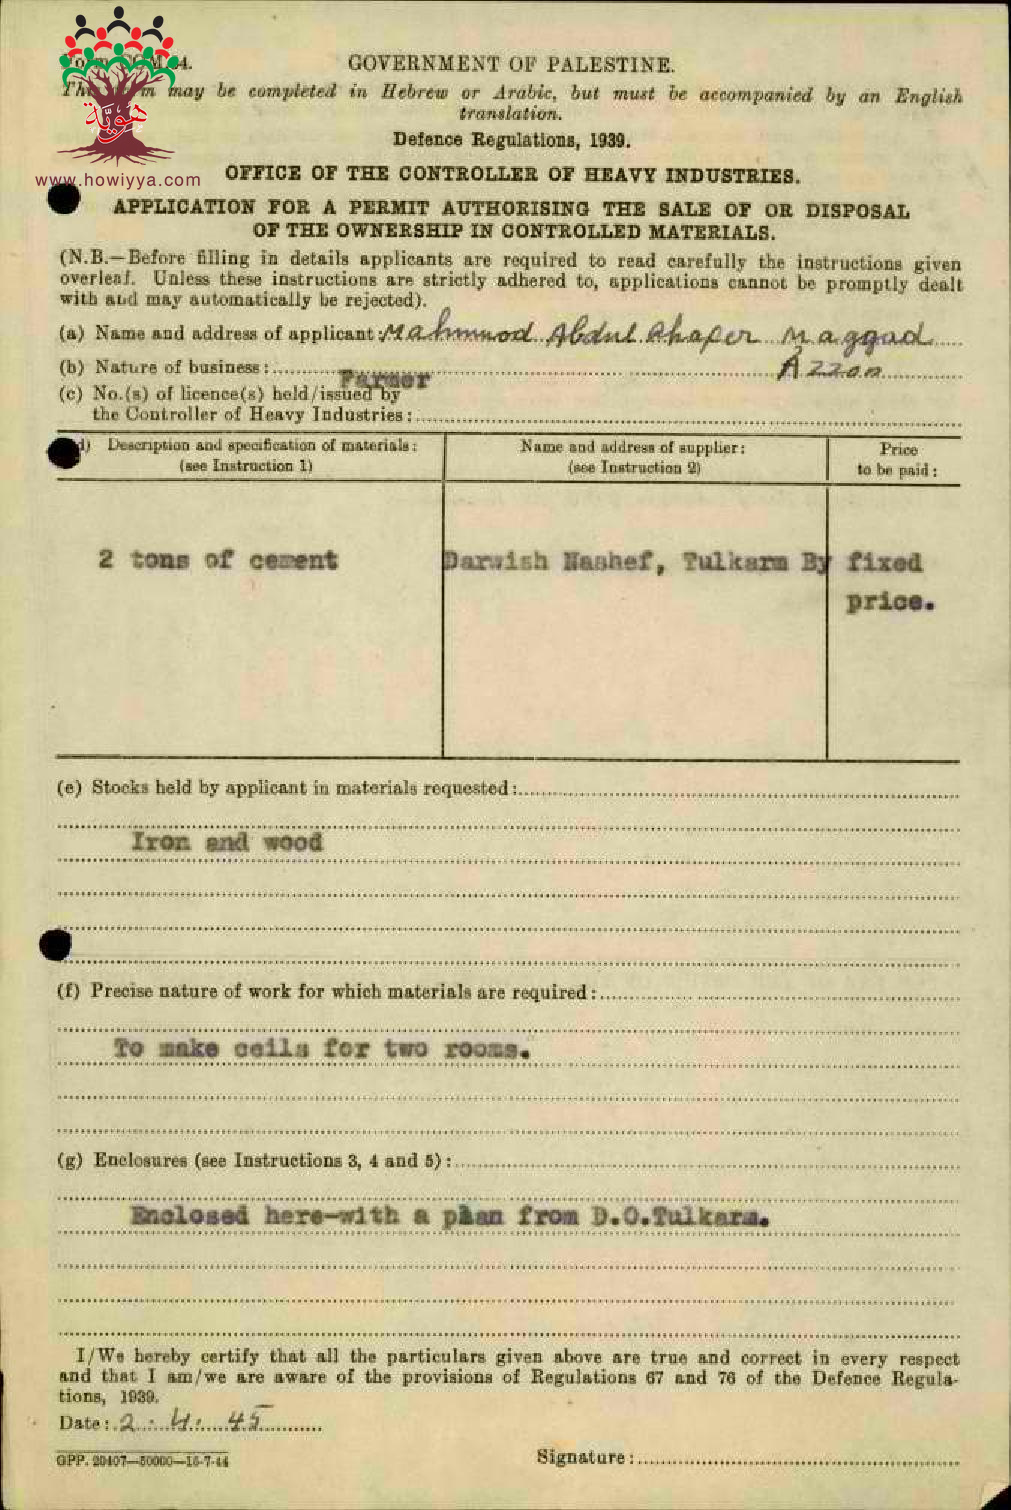 GOVERNMENT OF PALESTINE.
may be completed in Hebrew or Arabic, but must be accompanied by an English
translation.
هوية
Defence Regulations, 1939.
www.howiyya.com
OFFICE OF THE CONTROLLER OF HEAVY INDUSTRIES.
APPLICATION FOR A PERMIT AUTHORISING THE SALE OF OR DISPOSAL
OF THE OWNERSHIP IN CONTROLLED MATERIALS.
(N.B.—Before filling in details applicants are required to read carefully the instructions given
overleaf. Unless these instructions are strictly adhered to, applications cannot be promptly dealt
with and may automatically be rejected).
(a) Name and address of applicant: Mahmmod Abdul Ghafer Maggad
(b) Nature of business: Azzon
Farmer
(c) No.(s) of licence(s) held/issued by
the Controller of Heavy Industries:
d) Description and specification of materials: Name and address of supplier: Price
(see Instruction 1) (see Instruction 2) to be paid:
2 tons of cement Darwish Nashef, Tulkarm By fixed
price.
(e) Stocks held by applicant in materials requested:
Iron and wood
(f) Precise nature of work for which materials are required:
To make ceils for two rooms.
(g) Enclosures (see Instructions 3, 4 and 5):
Enclosed here-with a plan from D.O.Tulkarm.
I/We hereby certify that all the particulars given above are true and correct in every respect
and that I am/we are aware of the provisions of Regulations 67 and 76 of the Defence Regula-
tions, 1939.
Date: 2.4.45
GPP. 20407—50000—16-7-44
Signature: